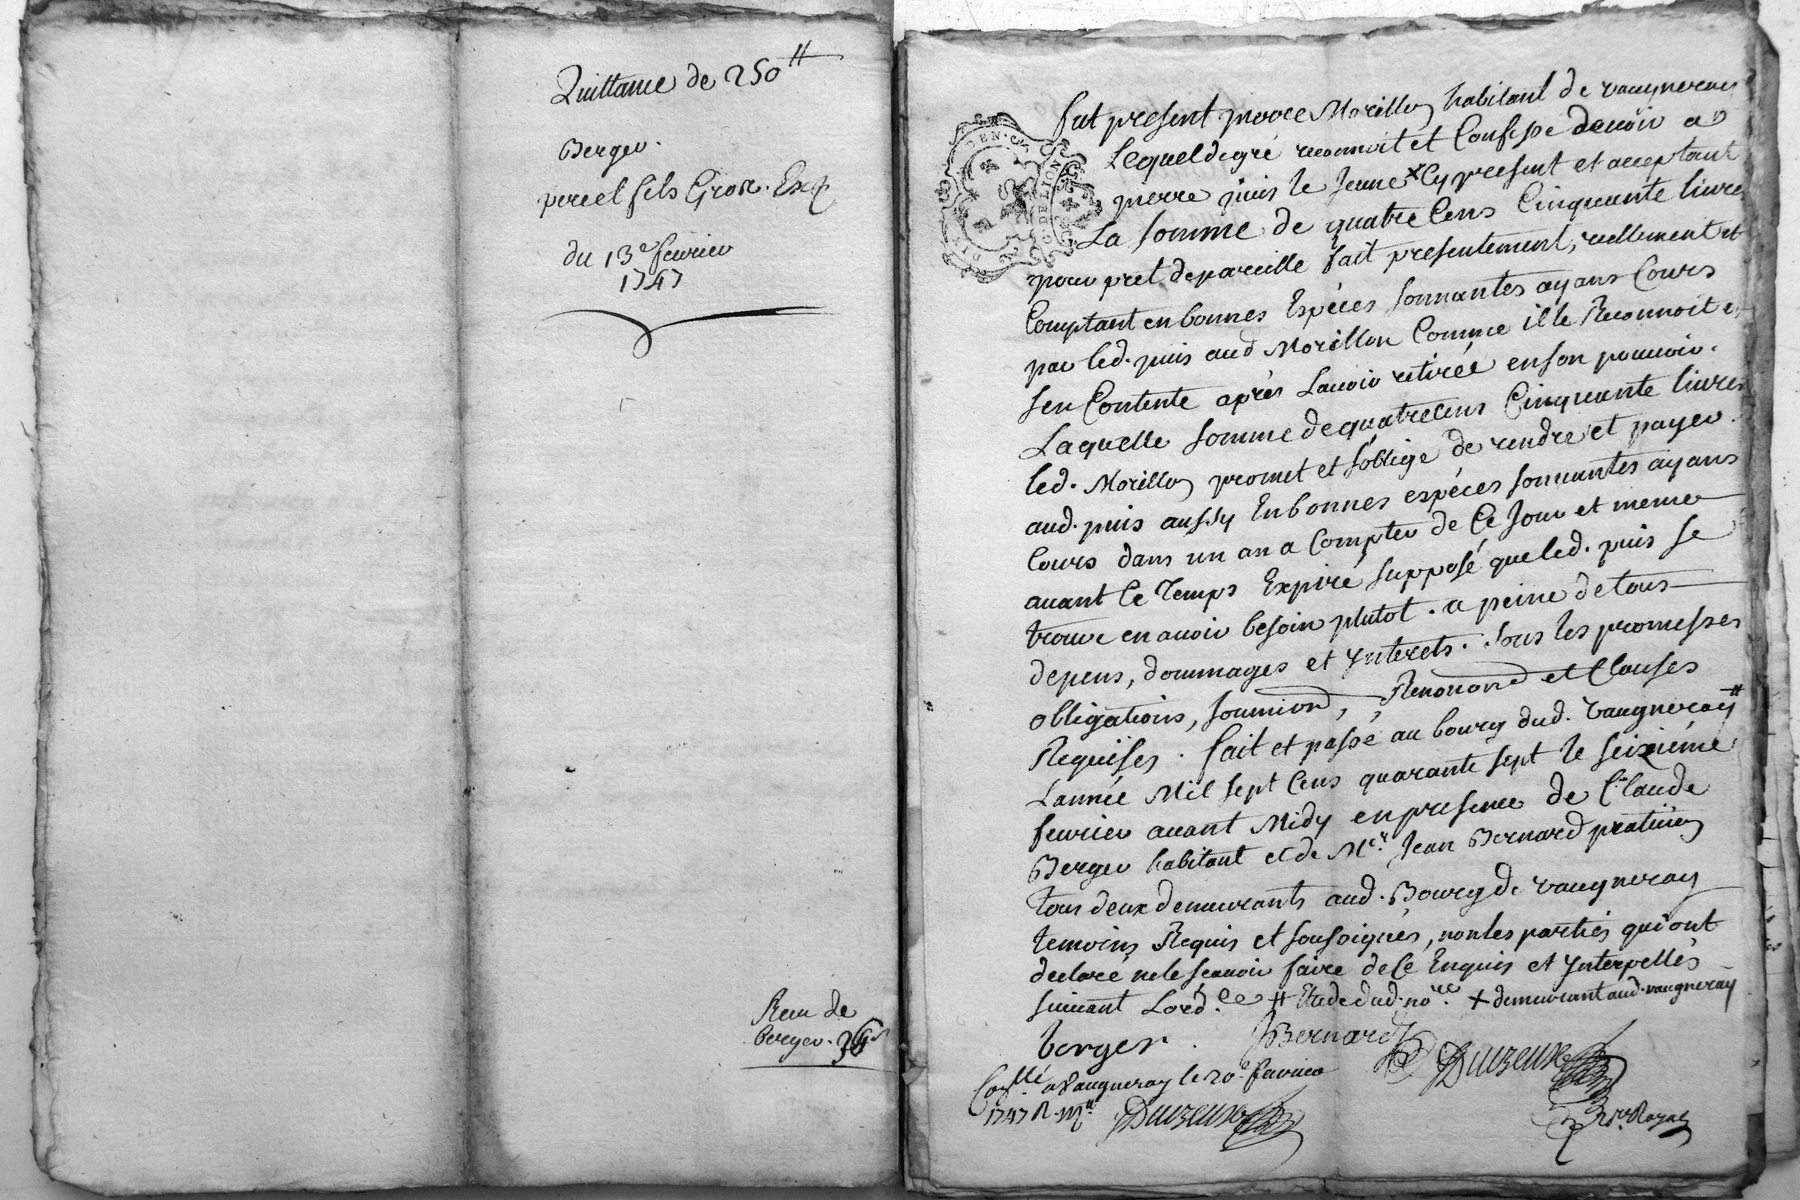 Quittance de 250ᵗᵗ
Berger.
pere et fils Gros. Exp.
du 13ᵉ fevrier
1747
Receu de
berger. 36ˢ
GEN. DE LION
fut present pierre Morillon habitant de vaugneray
Lequel de gré reconnoit et Confesse devoir a
pierre puis le Jeune + Cy present et acceptant
La somme de quatre Cens Cinquante livres
pour pret de pareille fait presentement, reellement et
Comptant en bonnes Espéces sonnantes ayans Cours
par led. puis aud Morillon Comme il le Reconnoit et
sen Contente après Lavoir retirée en son pouvoir.
Laquelle somme de quatre Cens Cinquante livres
led. Morillon promet et soblige de rendre et payer
aud. puis aussy En bonnes espéces sonnantes ayans
Cours dans un an a Compter de Ce Jour et meme
avant le Temps Expiré supposé que led. puis se
trouve en avoir besoin plutot. a peine de tous
depens, dommages et Interets. sous les promesses
obligations, soumiond, Renoncond et Clauses
Requises. fait et passé au bourg dud. vaugneray #
Lannée Mil sept Cens quarante sept le seizième
fevrier avant Midy en presence de Claude
Berger habitant et de Mᵉʳ Jean Bernard praticien
tous deux demeurants aud. Bourg de vaugneray
temoins Requis et sousoignés, non les parties qui ont
declaré ne le sçavoir faire de Ce Enquis et Interpellés
suivant Lord.ᶜᵉ # Etude dud. noʳᵉ. + demeurant aud. vaugneray
berger. JBernard Duizeux
Conˡˡé a Vaugneray le 20ᵉ fevrier
1747 R. Duizeux
Nʳᵉ Royal